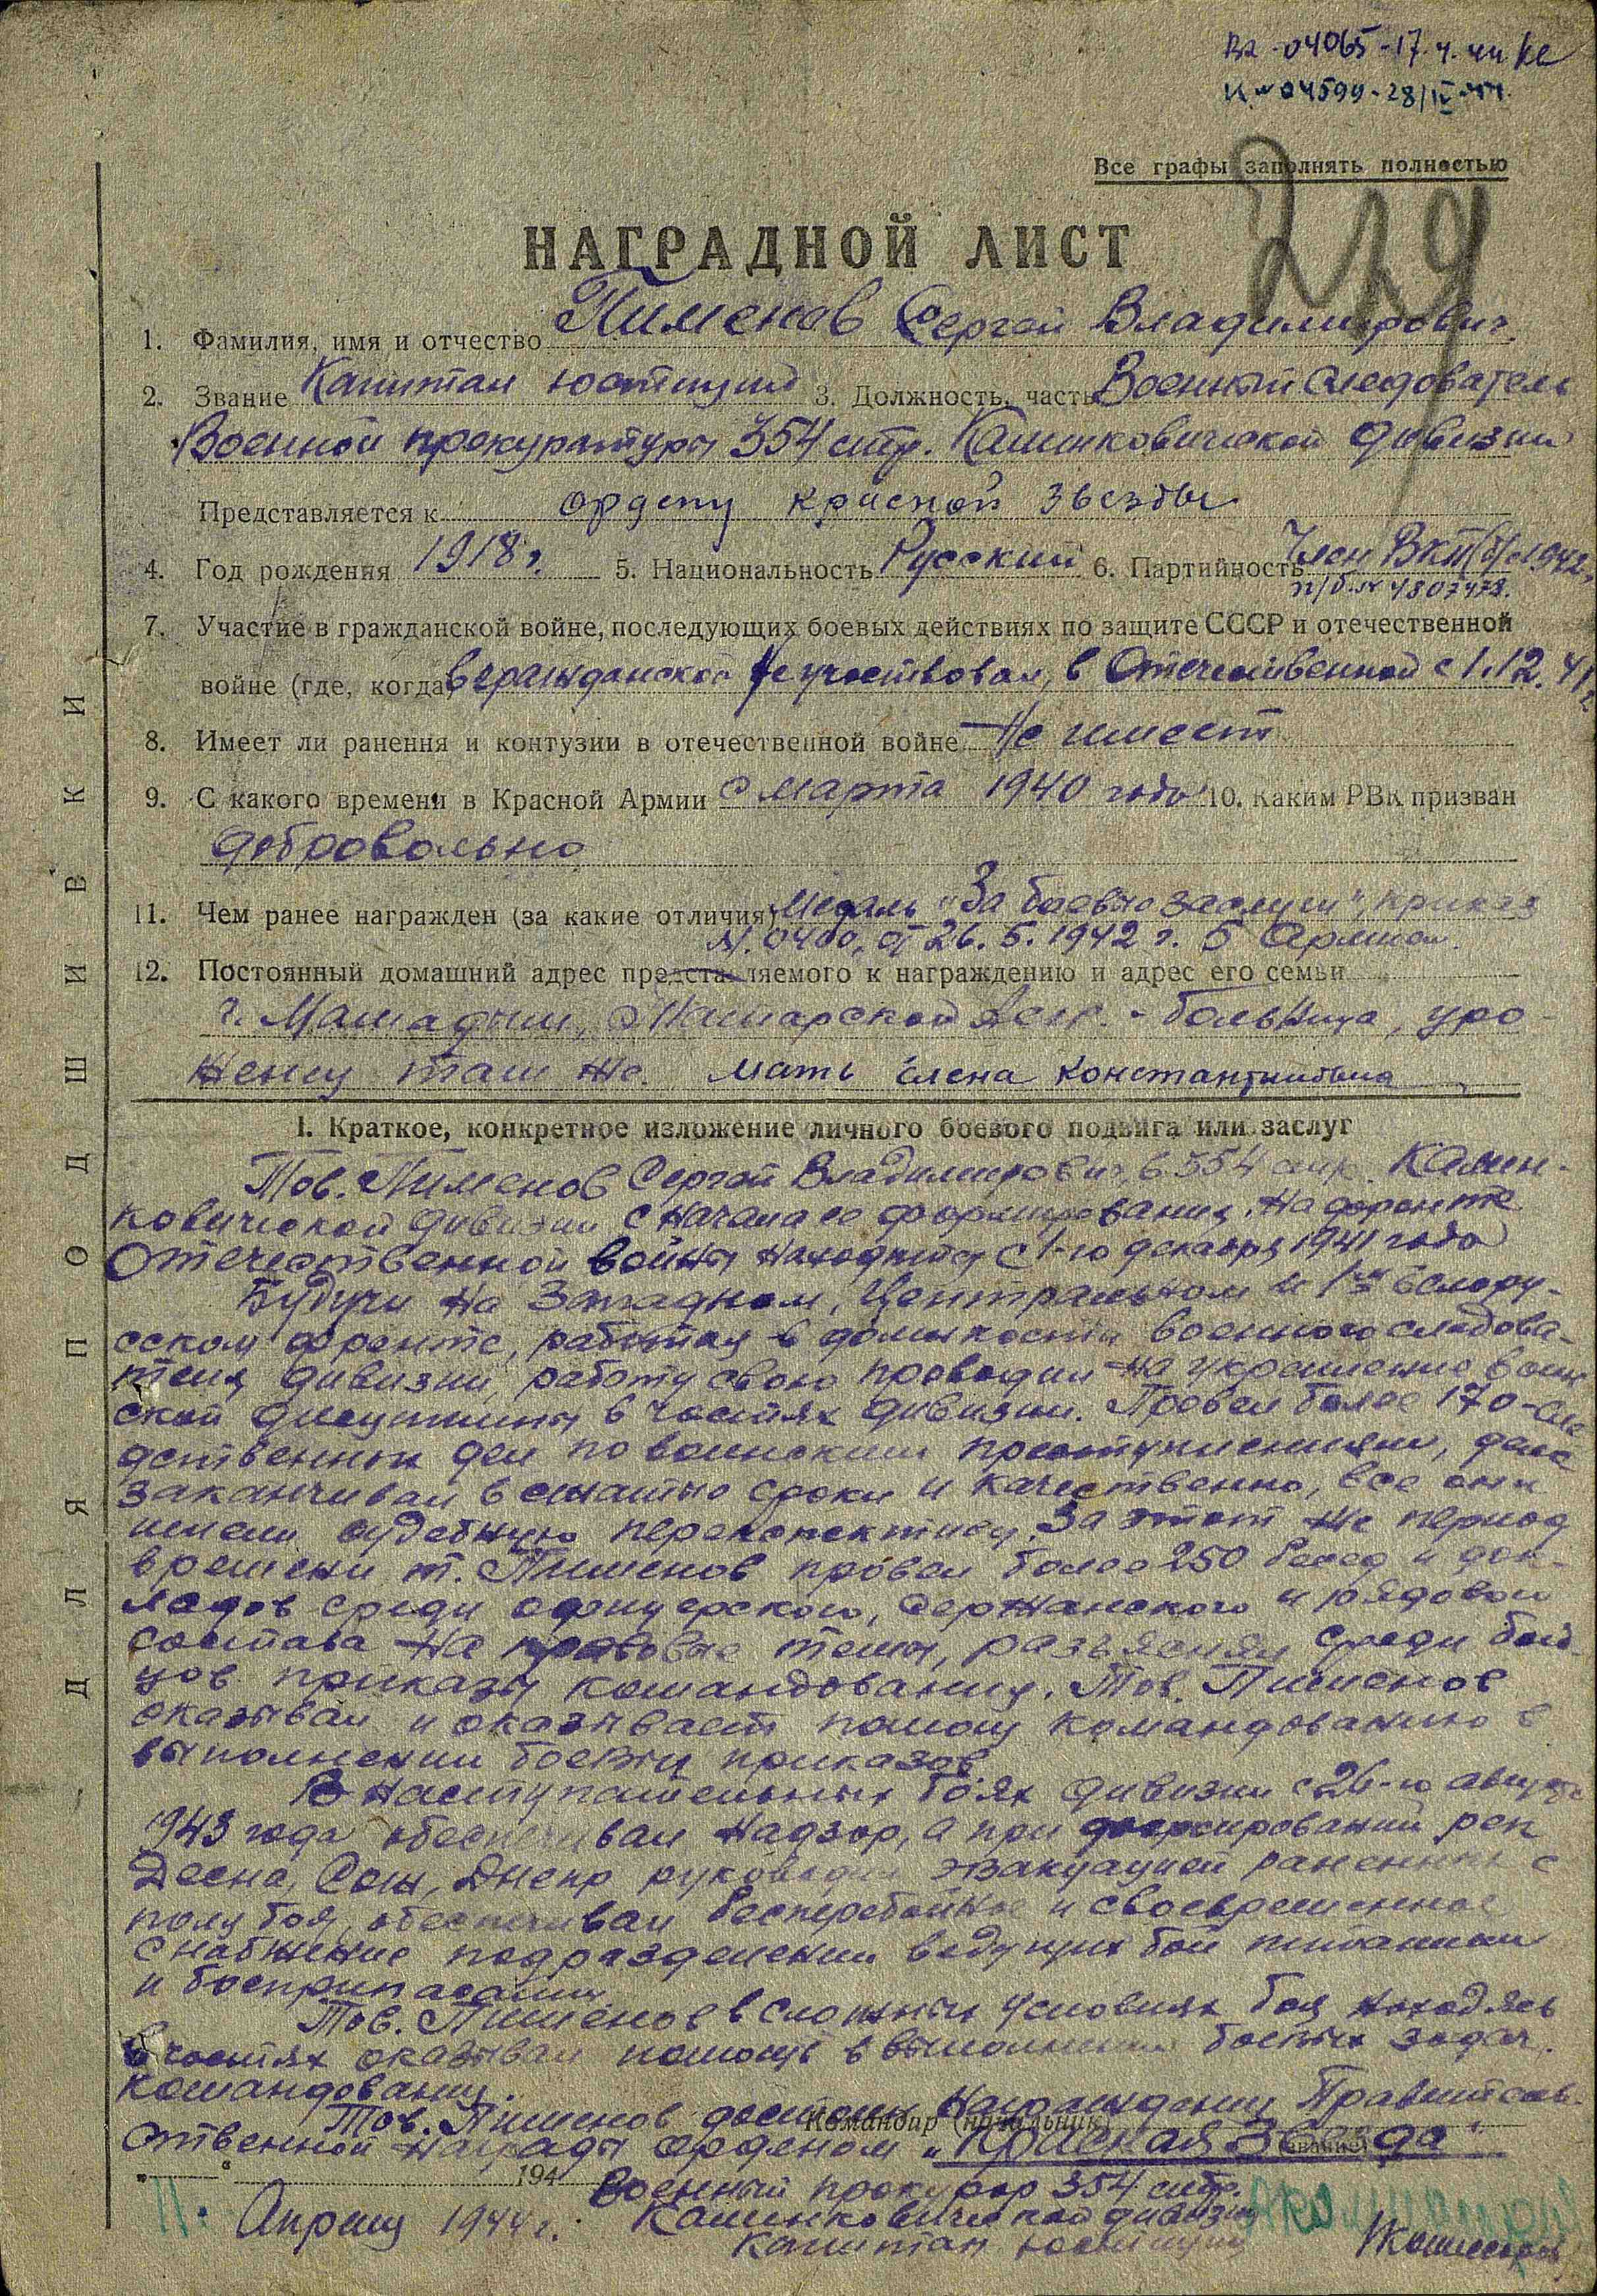 Вх -04065-17.4.44
04599-28/IV-44.
Все графы заполнять полностью
219
НАГРАДНОЙ ЛИСТ
1. Фамилия, имя и отчество Пименов Сергей Владимирович
2. Звание Капитан юстиции 3. Должность, часть Военный следователь
Военной прокуратуры 354 стр. Калинковической дивизии
Представляется к ордену красной звезды
4. Год рождения 1918 г. 5. Национальность Русский 6. Партийность Член ВКП(б) с 1942
п/б. № 4807478.
7. Участие в гражданской войне, последующих боевых действиях по защите СССР и отечественной
войне (где, когда) в гражданской не участвовал, в Отечественной с 1.12.41 г.
8. Имеет ли ранения и контузии в отечественной войне Не имеет
9. С какого времени в Красной Армии с марта 1940 года 10. Каким РВК призван
добровольно
11. Чем ранее награжден (за какие отличия) Медаль "За боевые заслуги", приказ
N. 0400, от 26.5.1942 г. 5 Армии.
12. Постоянный домашний адрес представляемого к награждению и адрес его семьи
г. Мамадыш, Татарской АССР. - больница, уро-
женец там же. мать Елена Константиновна
I. Краткое, конкретное изложение личного боевого подвига или заслуг
Тов. Пименов Сергей Владимирович, в 354 стр. Калин-
ковической дивизии с начала ее формирования. На фронте
Отечественной войны находится с 1-го декабря 1941 года
Будучи на Западном, Центральном и 1м Белору-
сском фронте, работая в должности военного следова-
теля дивизии, работу свою проводил на укрепление воин
ской дисциплины в частях дивизии. Провел более 170-сле
дственных дел по воинским преступлениям, дела
заканчивал в сжатые сроки и качественно, все они
имели судебную перекспективу. За этот же период
времени т. Пименов провел более 250 бесед и док-
ладов среди офицерского, сержанского и рядового
состава на правовые темы, разъяснял среди бой-
цов приказы командования. Тов. Пименов
оказывал и оказывает помощ командованию в
выполнении боевых приказов.
В наступательных боях дивизии с 26-го августа
1943 года обеспечивал надзор, а при форсировании рек
Десна, Сож, Днепр руководил эвакуацией раненных с
поля боя, обеспечивал бесперебойное и своевременное
снабжение подразделений ведущих бой питанием
и боеприпасами.
Тов. Пименов в сложных условиях боя находясь
в частях оказывал помощь в выполнении боевых задач
командования.
Тов. Пименов достоин награждения Правительс-
Командир (начальник)
ственной награды орденом "Красная Звезда"
" " 194
Военный прокурор 354 стр.
11. Апреля 1944 г. Калинковической дивизии
Капитан юстиции
ДЛЯ ПОДШИВКИ